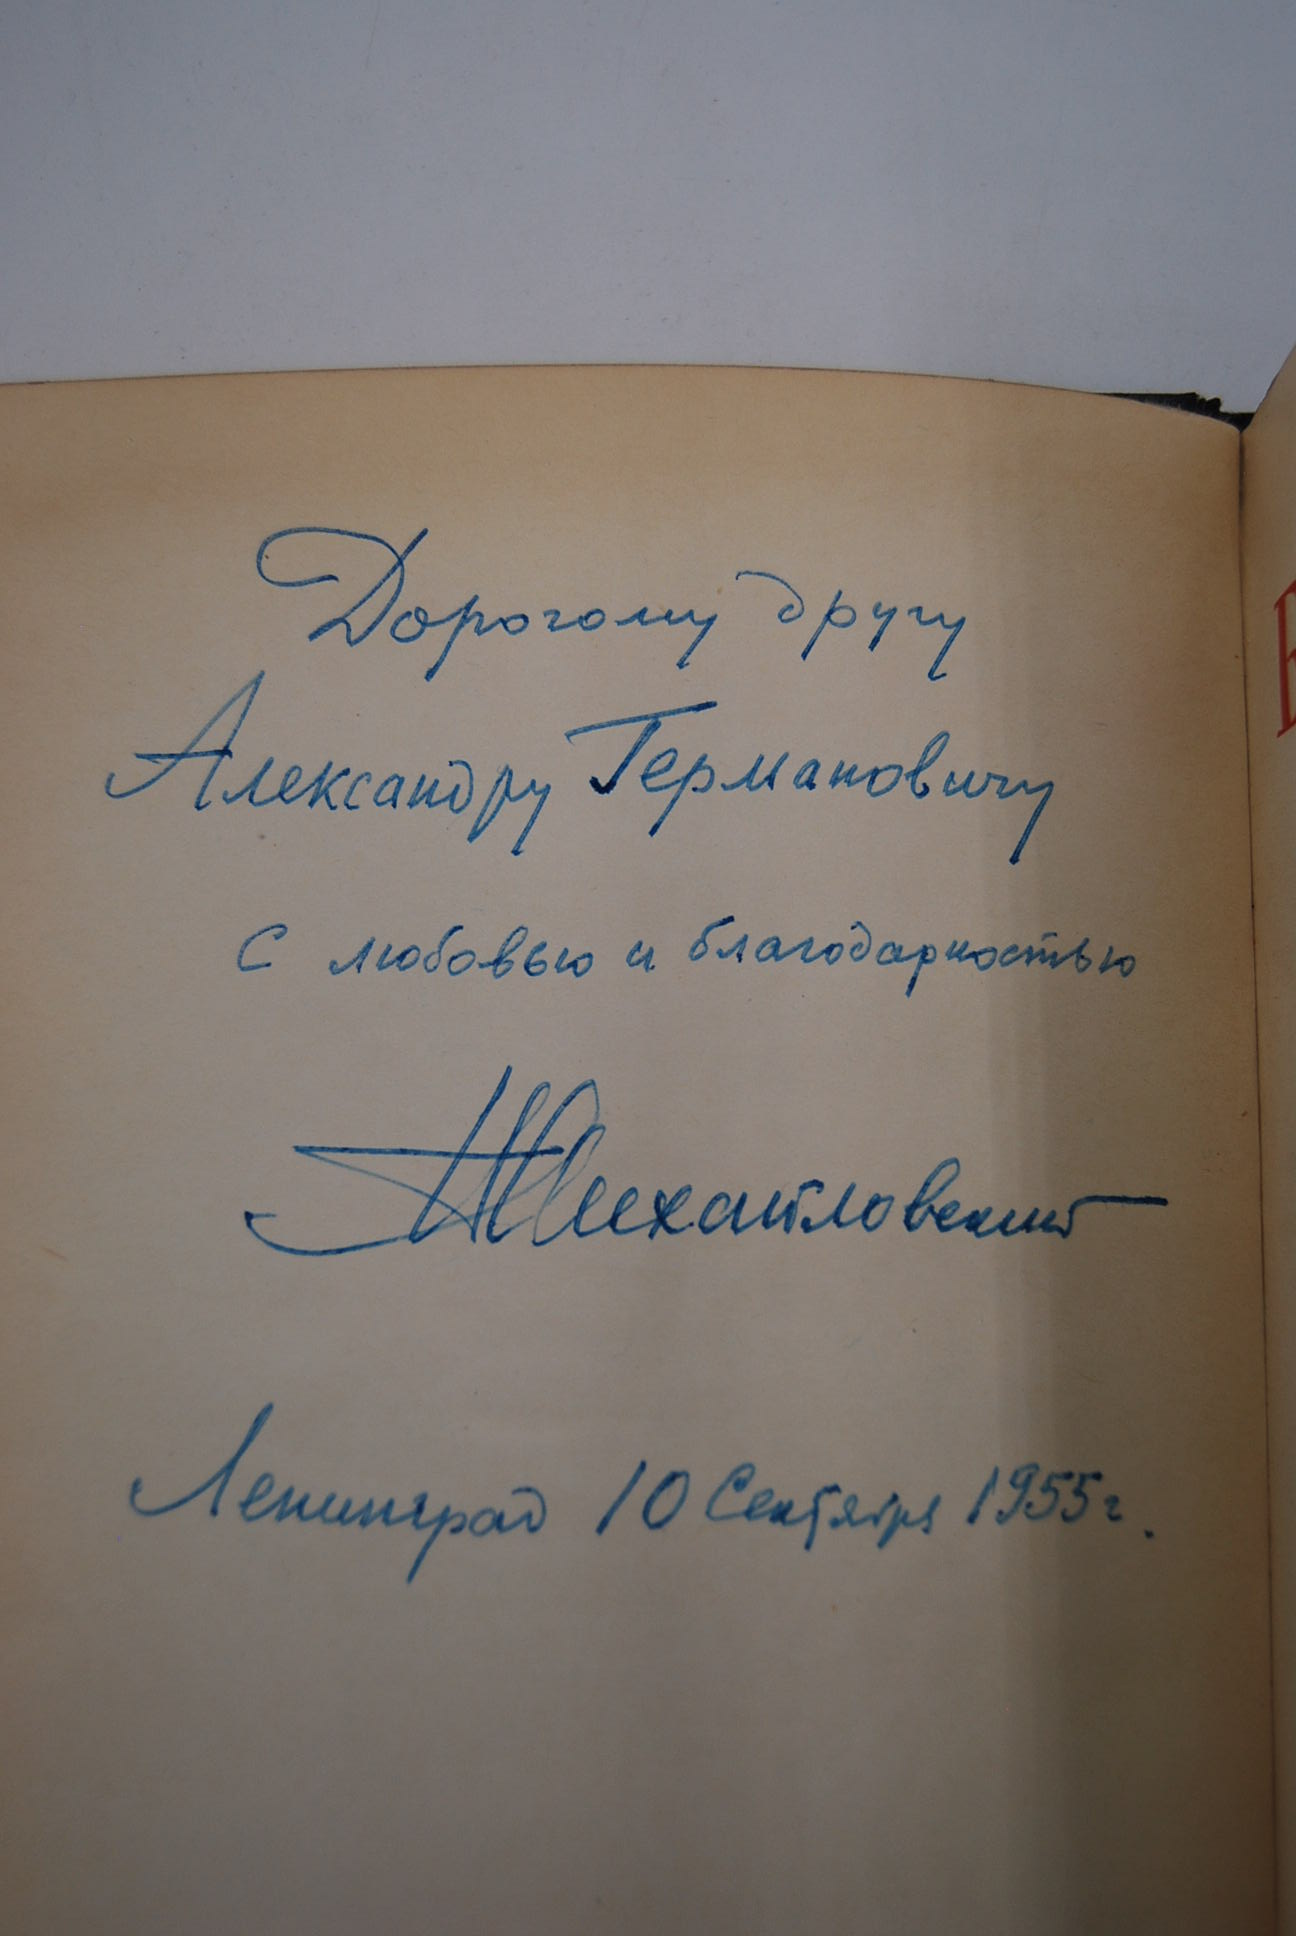 Дорогому другу
Александру Германовичу
с любовью и благодарностью
Михайловский
Ленинград 10 Сентября 1955 г.